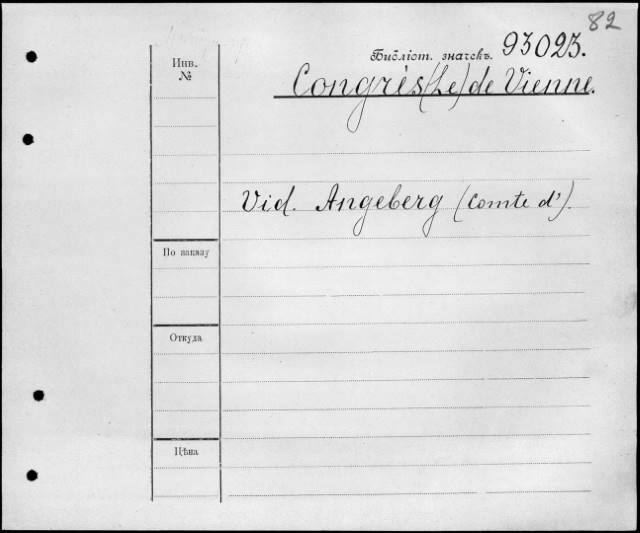 82
Библіот. значекъ. 93023.
Инв.
№
Congrès (Le) de Vienne.
Vid. Angeberg (Comte d').
По заказу
Откуда
Цѣна